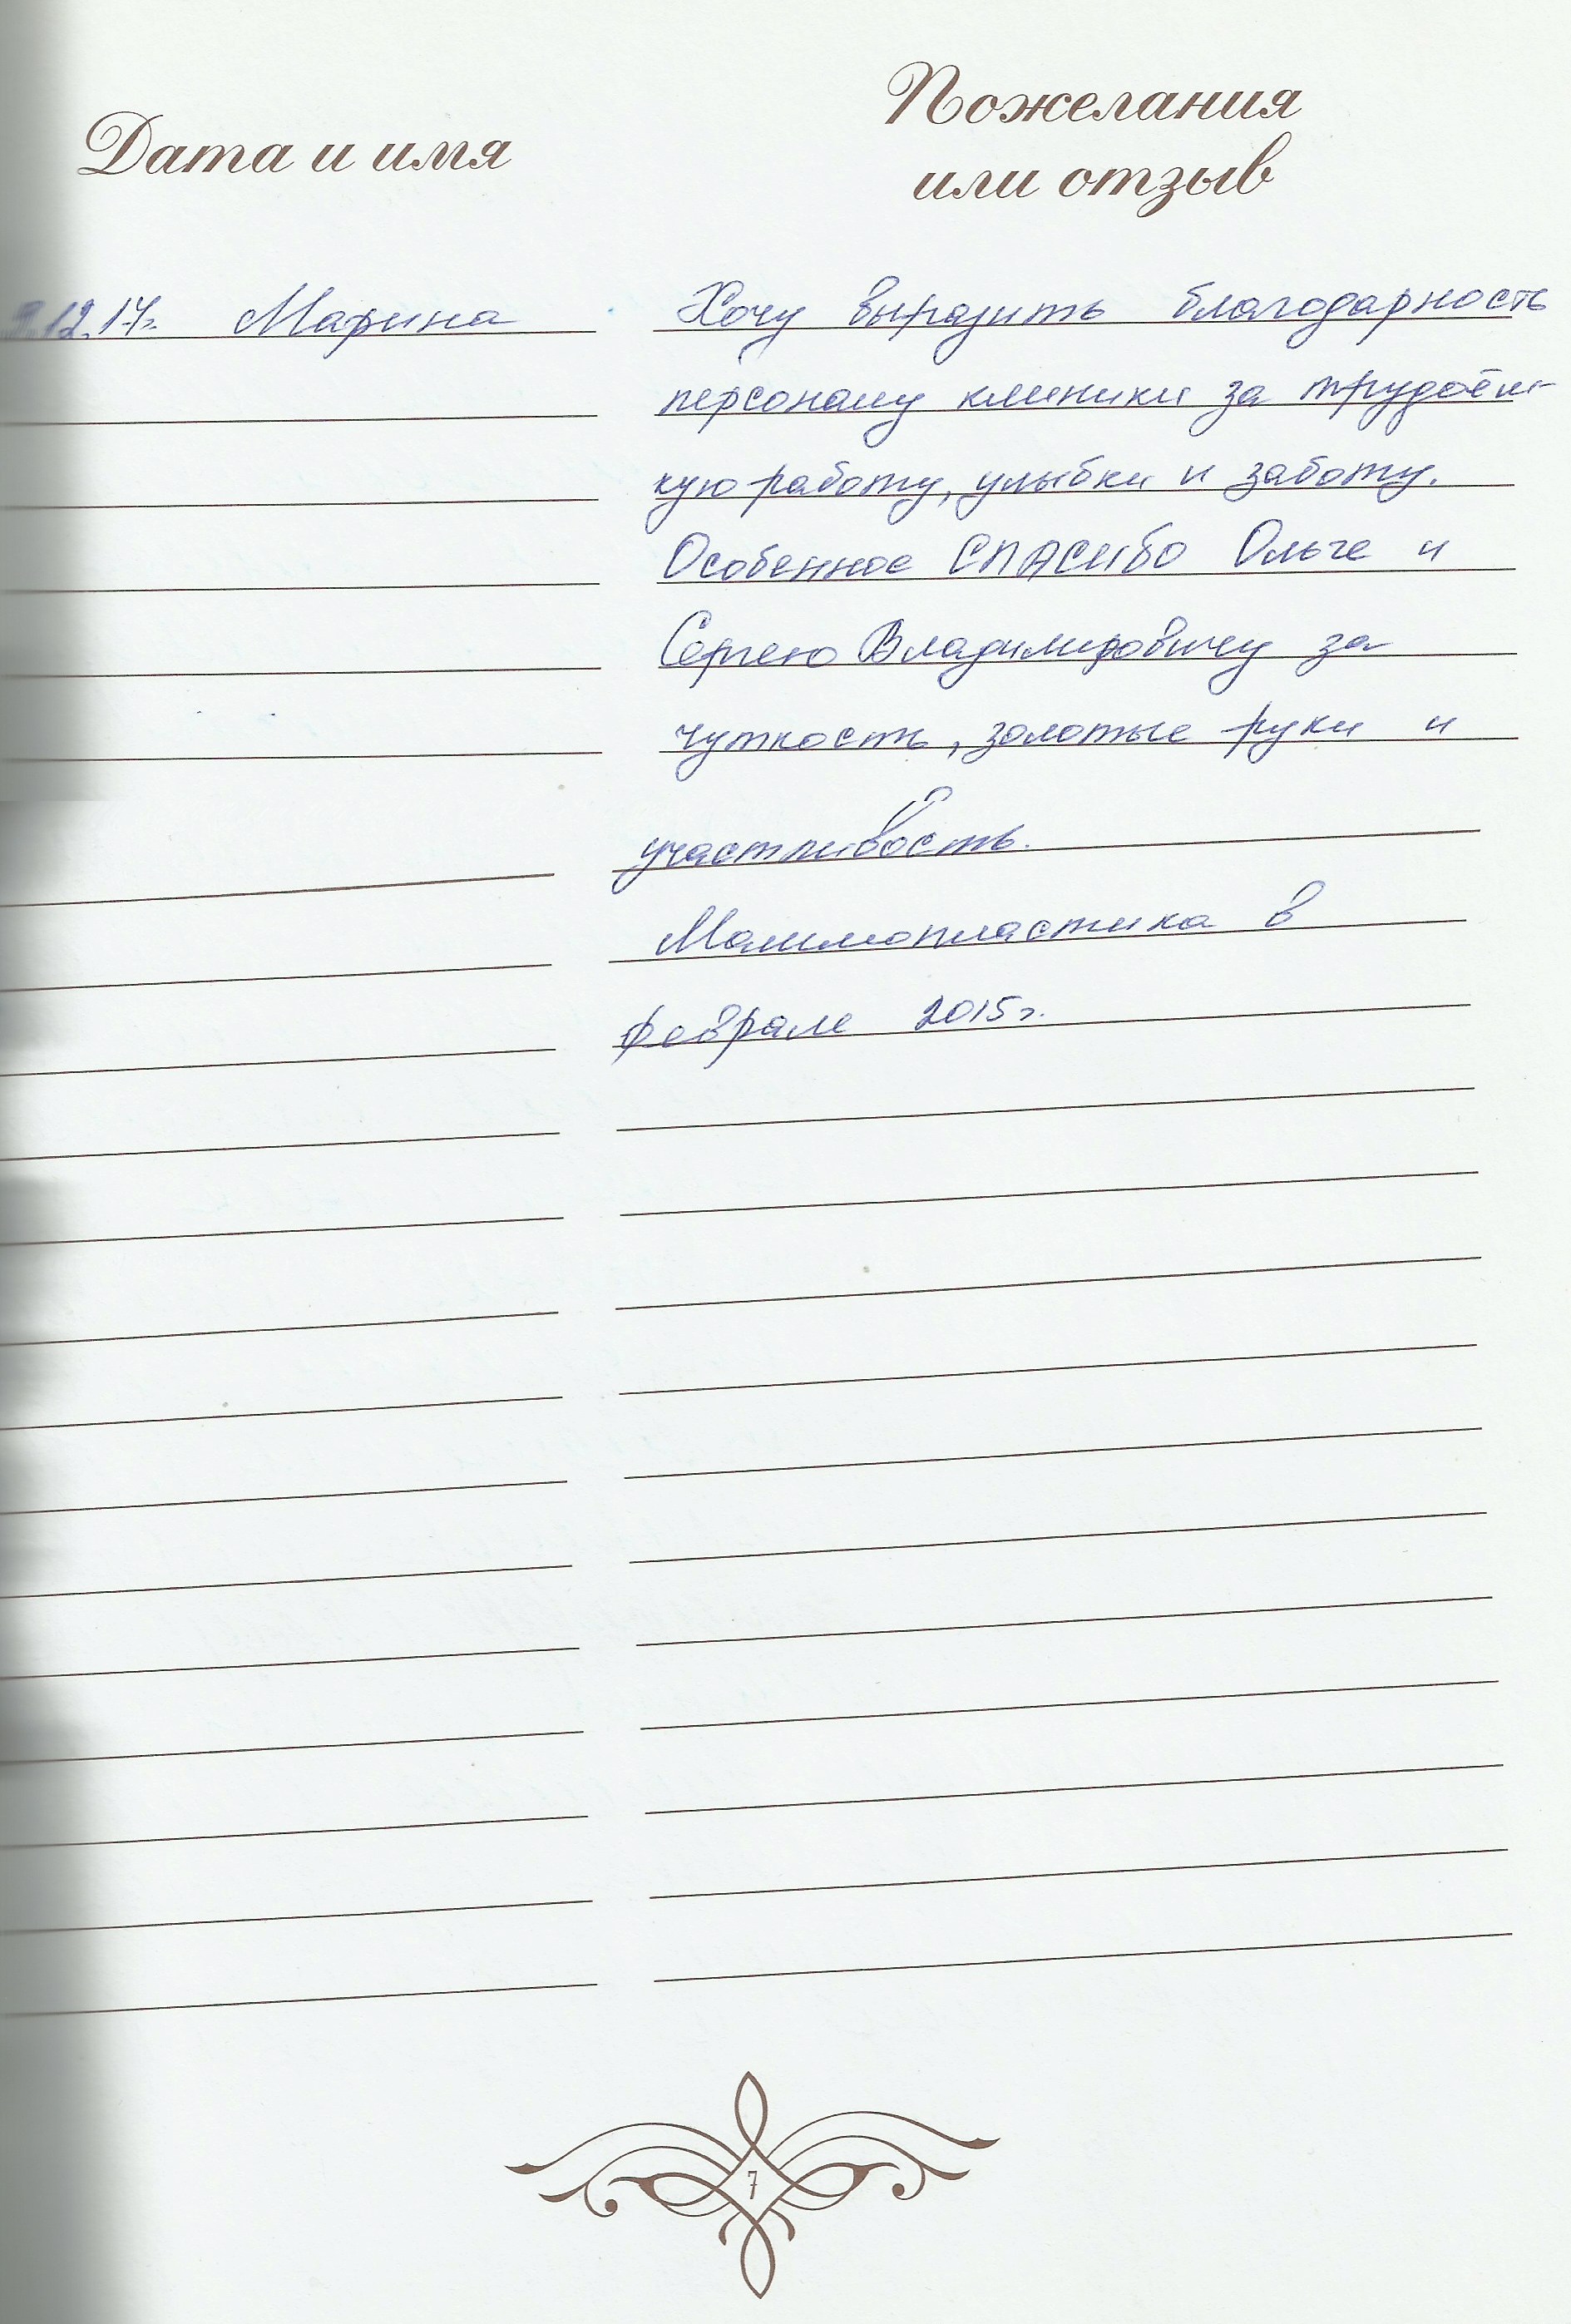 Дата и имя
Пожелания
или отзыв
9.12.17г. Марина
Хочу выразить благодарность
персоналу клиники за трудоём-
кую работу, улыбки и заботу.
Особенное СПАСИБО Ольге и
Сергею Владимировичу за
чуткость, золотые руки и
участливость.
Маммопластика в
феврале 2015г.
7